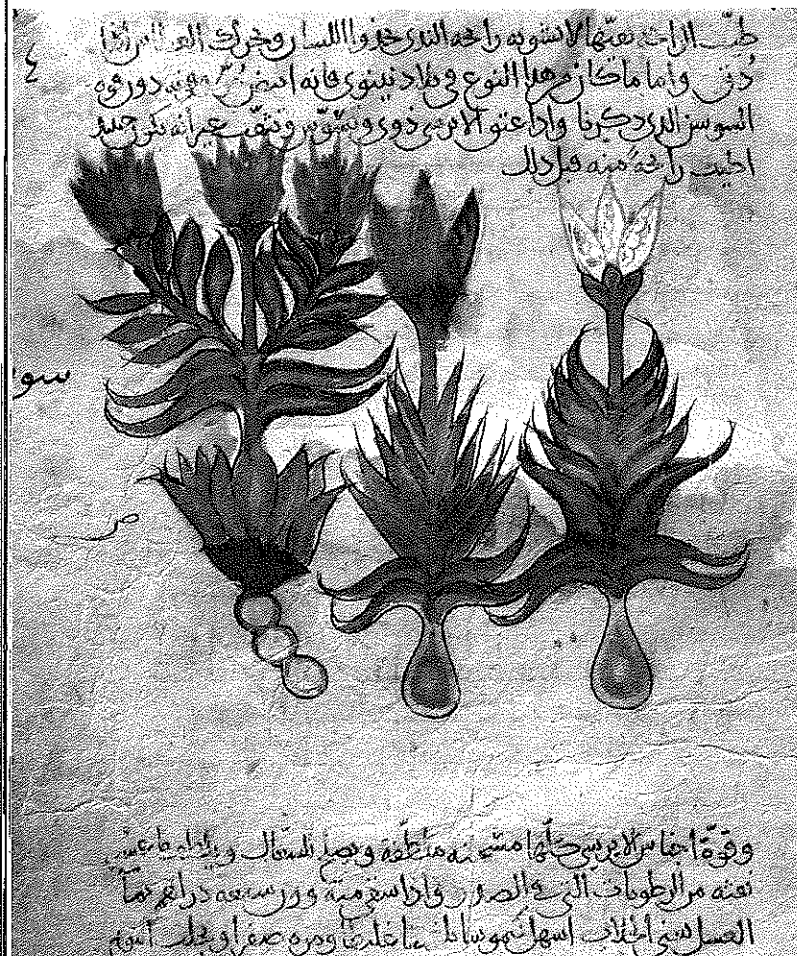 ٤
طيب الرائحة نقيها لا تشوبه رائحة الندى حذو اللسان ويحرك العطاس اذا
دق واما ما كان من هذا النوع في بلاد نينوى فانه ابيض مر دون قوة
السوسن الذي ذكرنا واذا عتق الايرسى ذوى وتسوس وتثقب غير انه يكون حينئذ
اطيب رائحة منه قبل ذلك
سو
وقوة اجناس الايرسى كلها مسخنة ملطفة ويصلح للسعال ما عسر
نفثه من الرطوبات التي في الصدر واذا سقي منه وزن سبعه دراهم بما
العسل اسهل كيموسا غليظا ومره صفرا ويجلب النوم